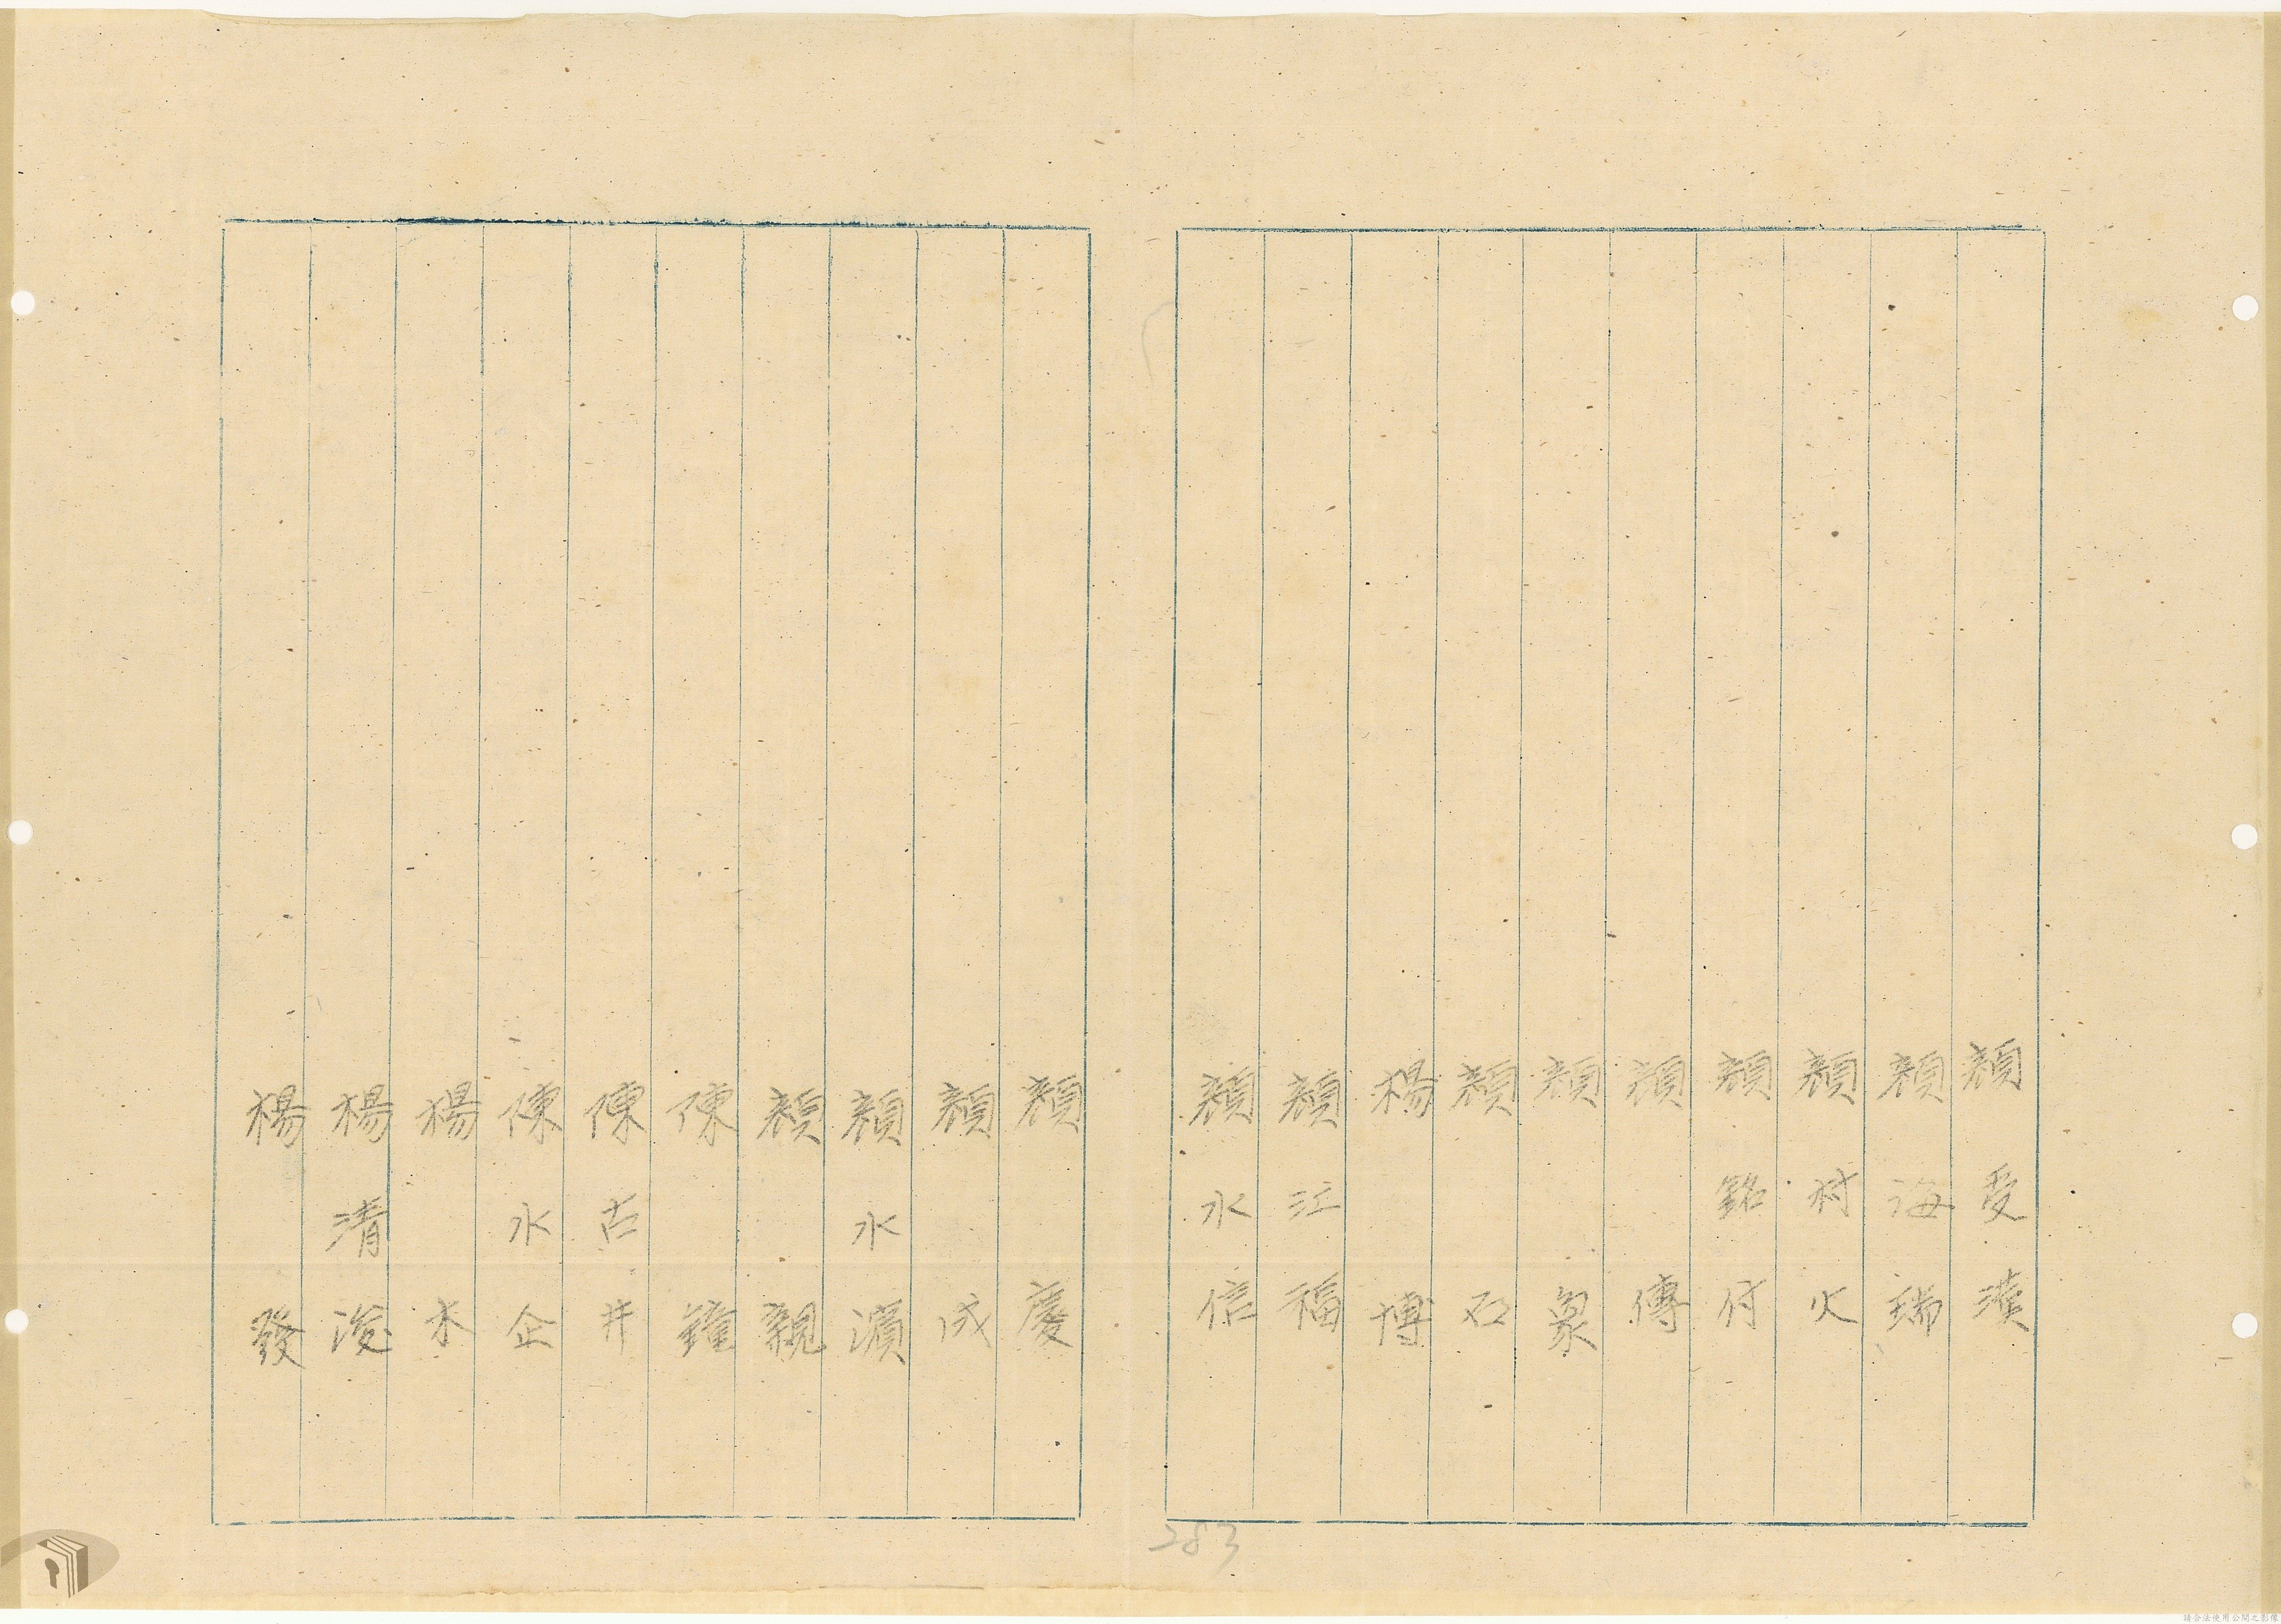 顏受漢
顏海瑞
顏村火
顏銘付
顏傳
顏象
顏石
楊博
顏江福
顏水信
顏慶
顏成
顏水濱
顏親
陳鐘
陳古井
陳水企
楊木
楊清浚
楊發
283
請合法使用公開之影像